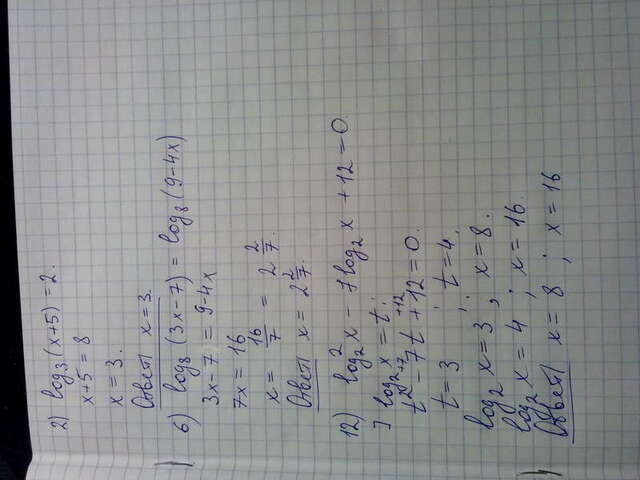 2) log₃(x+5)=2.
x+5=8
x=3.
Ответ x=3.
6) log₈(3x-7)=log₈(9-4x)
3x-7=9-4x
7x=16
x= 16/7 = 2 2/7.
Ответ x=2 2/7.
12) log₂²x-7log₂x+12=0.
] log₂x=t;
t²-7t+12=0.
t=3 ; t=4.
log₂x=3, x=8.
log₂x=4; x=16.
Ответ x=8; x=16